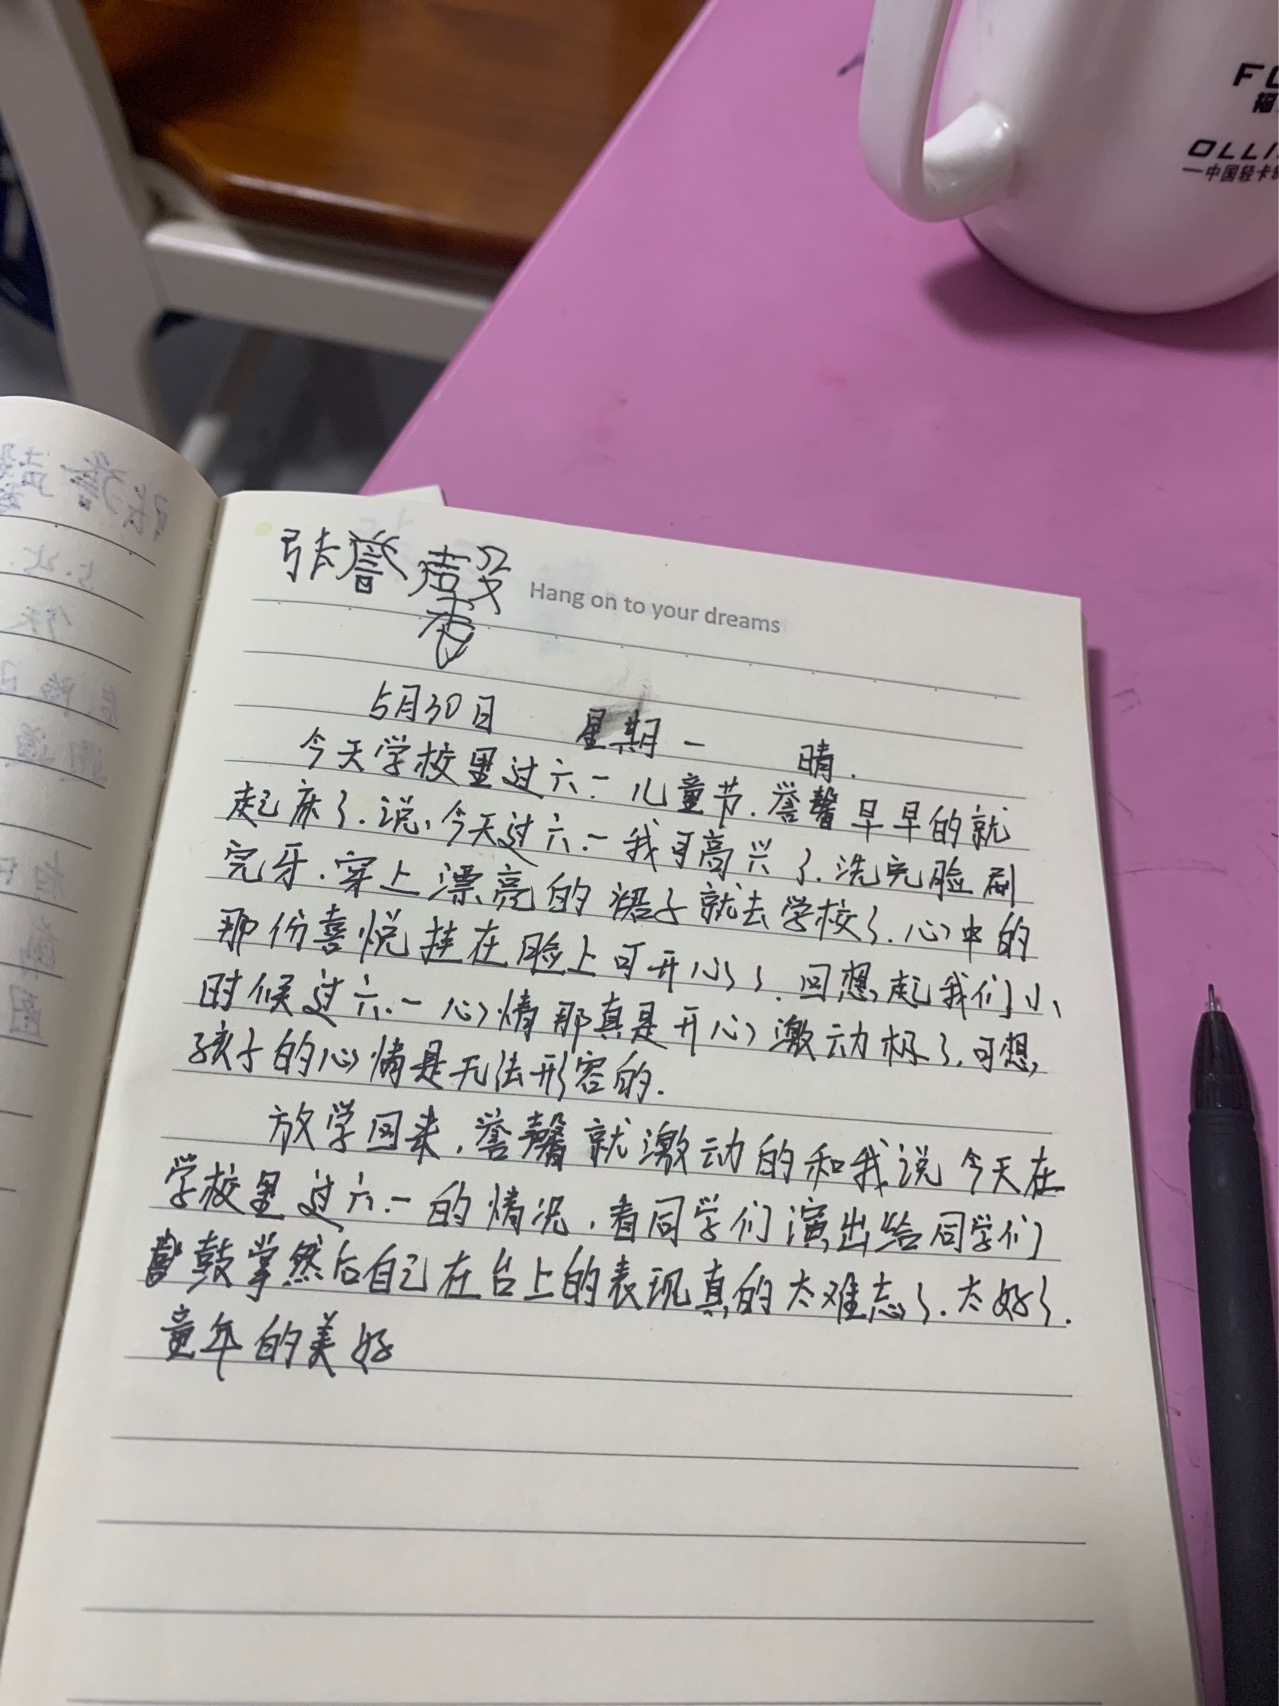 FO
福
OLLI
一中国轻卡
张誉馨
Hang on to your dreams
5月30日 星期一 晴.
今天学校里过六一儿童节.誉馨早早的就
起床了.说、今天过六一我可高兴了.洗完脸刷
完牙.穿上漂亮的裙子就去学校了.心中的
那份喜悦挂在脸上可开心了.回想起我们小
时候过六一心情那真是开心激动极了.可想,
孩子的心情是无法形容的.
放学回来,誉馨就激动的和我说今天在
学校里过六一的情况,看同学们演出给同学们
鼓掌然后自己在台上的表现真的太难忘了.太好了.
童年的美好